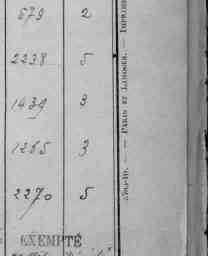 579 2
2238 5
1439 3
1265 3
2270 5
EXEMPTÉ
PARIS ET LIMOGES. — IMPRIM